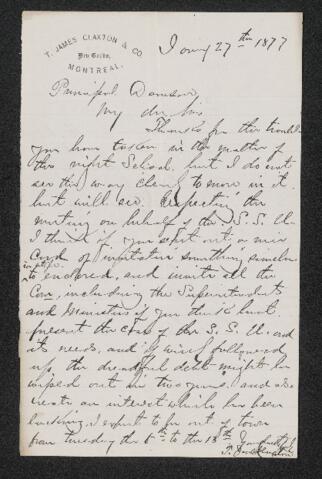 T. JAMES CLAXTON & CO.
Dry Goods,
MONTREAL.
27th 1877
Principal Dawson
My dr Sir
Thanks for the trouble
you have taken in the matter of
the night School, but I do not
see the way clear to move in it,
but will see. Respecting the
meeting on behalf of the S. S. U.
I think if you sent out a
Card of invitation something similar
to enclosed, and invite all the
Com, including the Superintendents
and Ministers if you
present the case of the S. S. U. and
its needs, and if wisely followed
up the dreadful debt might be
wiped out in two years, and also
create an interest which has been
lacking, I expect to be out of town
from tuesday the 6th to the 13th